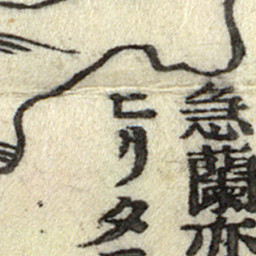 急蘭亦
ヒリタ